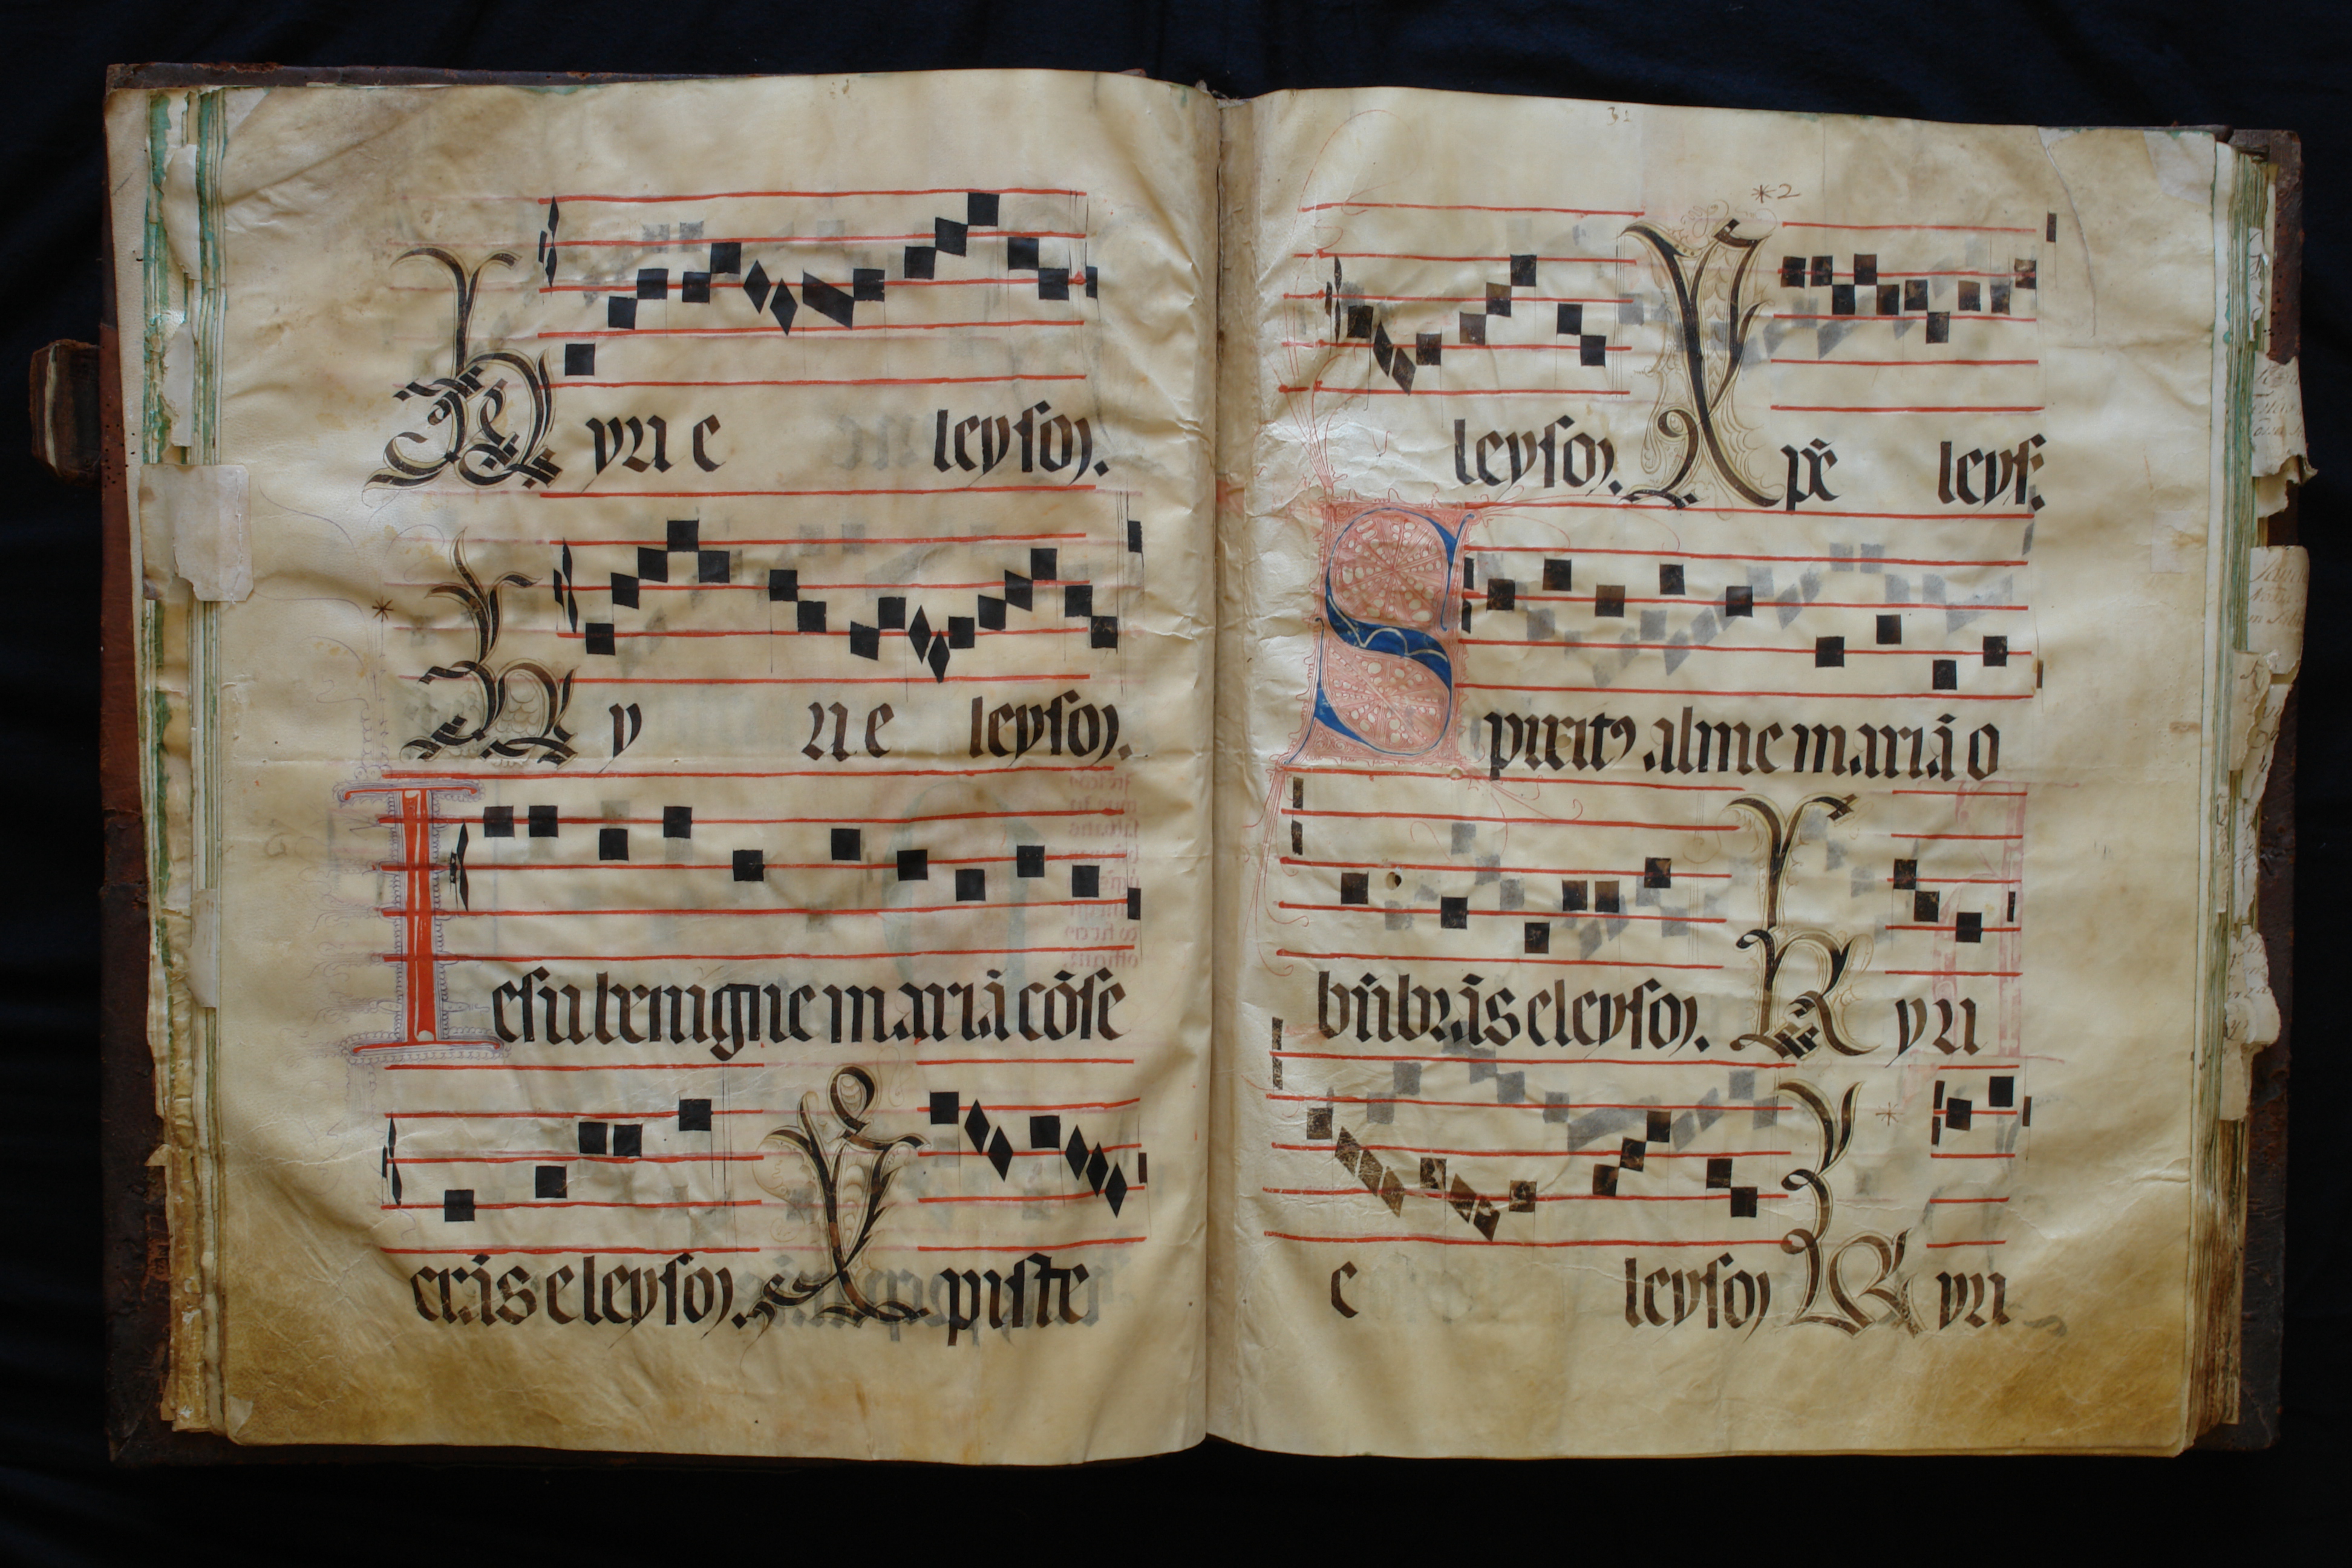 Kyri e leyson.
Ky ri e leyson.
Iesu benigne mariā cōse
crās eleyson. Xpiste
31
*2
leyson. Xpē leyſ.
Spiritꝰ alme mariā o
būbrās eleyson. Kyri
e leyson Kyri